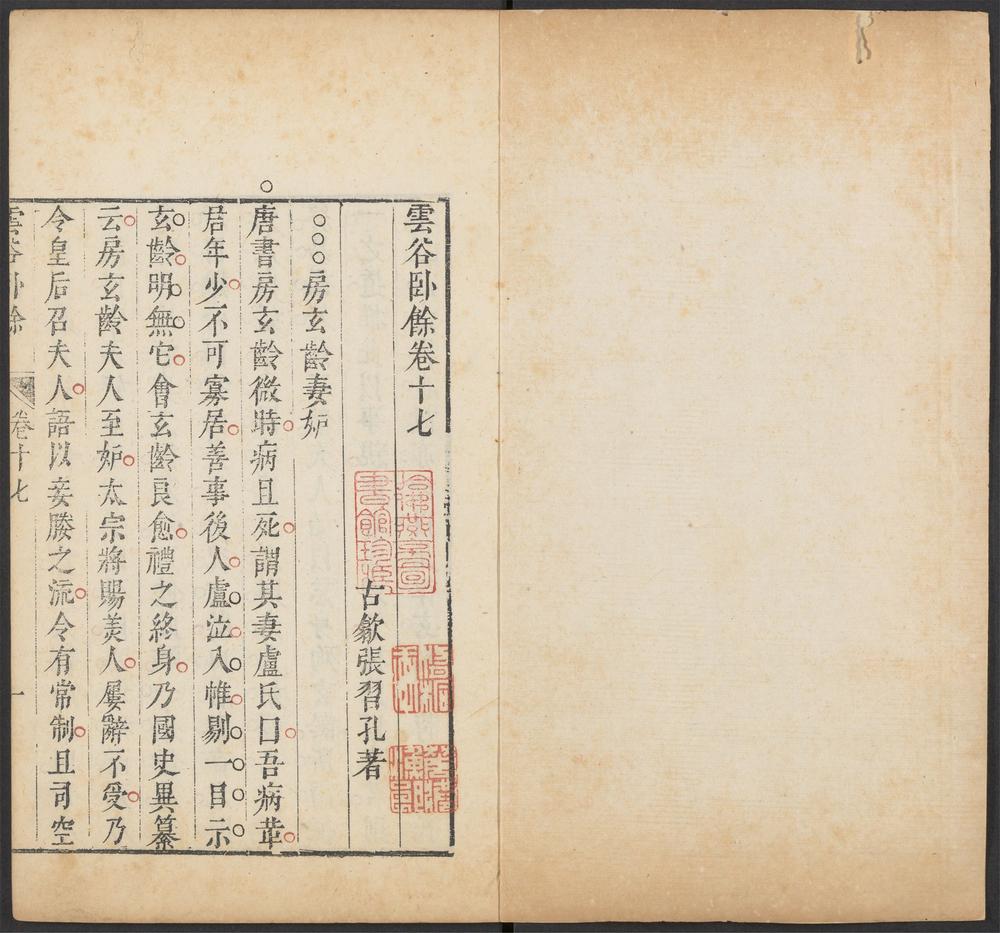 雲谷卧餘卷十七
古歙張習孔著
房玄齡妻妒
唐書房玄齡微時病且死謂其妻盧氏曰吾病革
君年少不可寡居善事後人盧泣入帷剔一目示
玄齡明無它會玄齡良愈禮之終身乃國史異纂
云房玄齡夫人至妒太宗將賜美人屢辭不受乃
令皇后召夫人語以妾媵之流令有常制且司空
雲谷卧餘
卷十七
一
哈佛燕京圖
書館珍藏